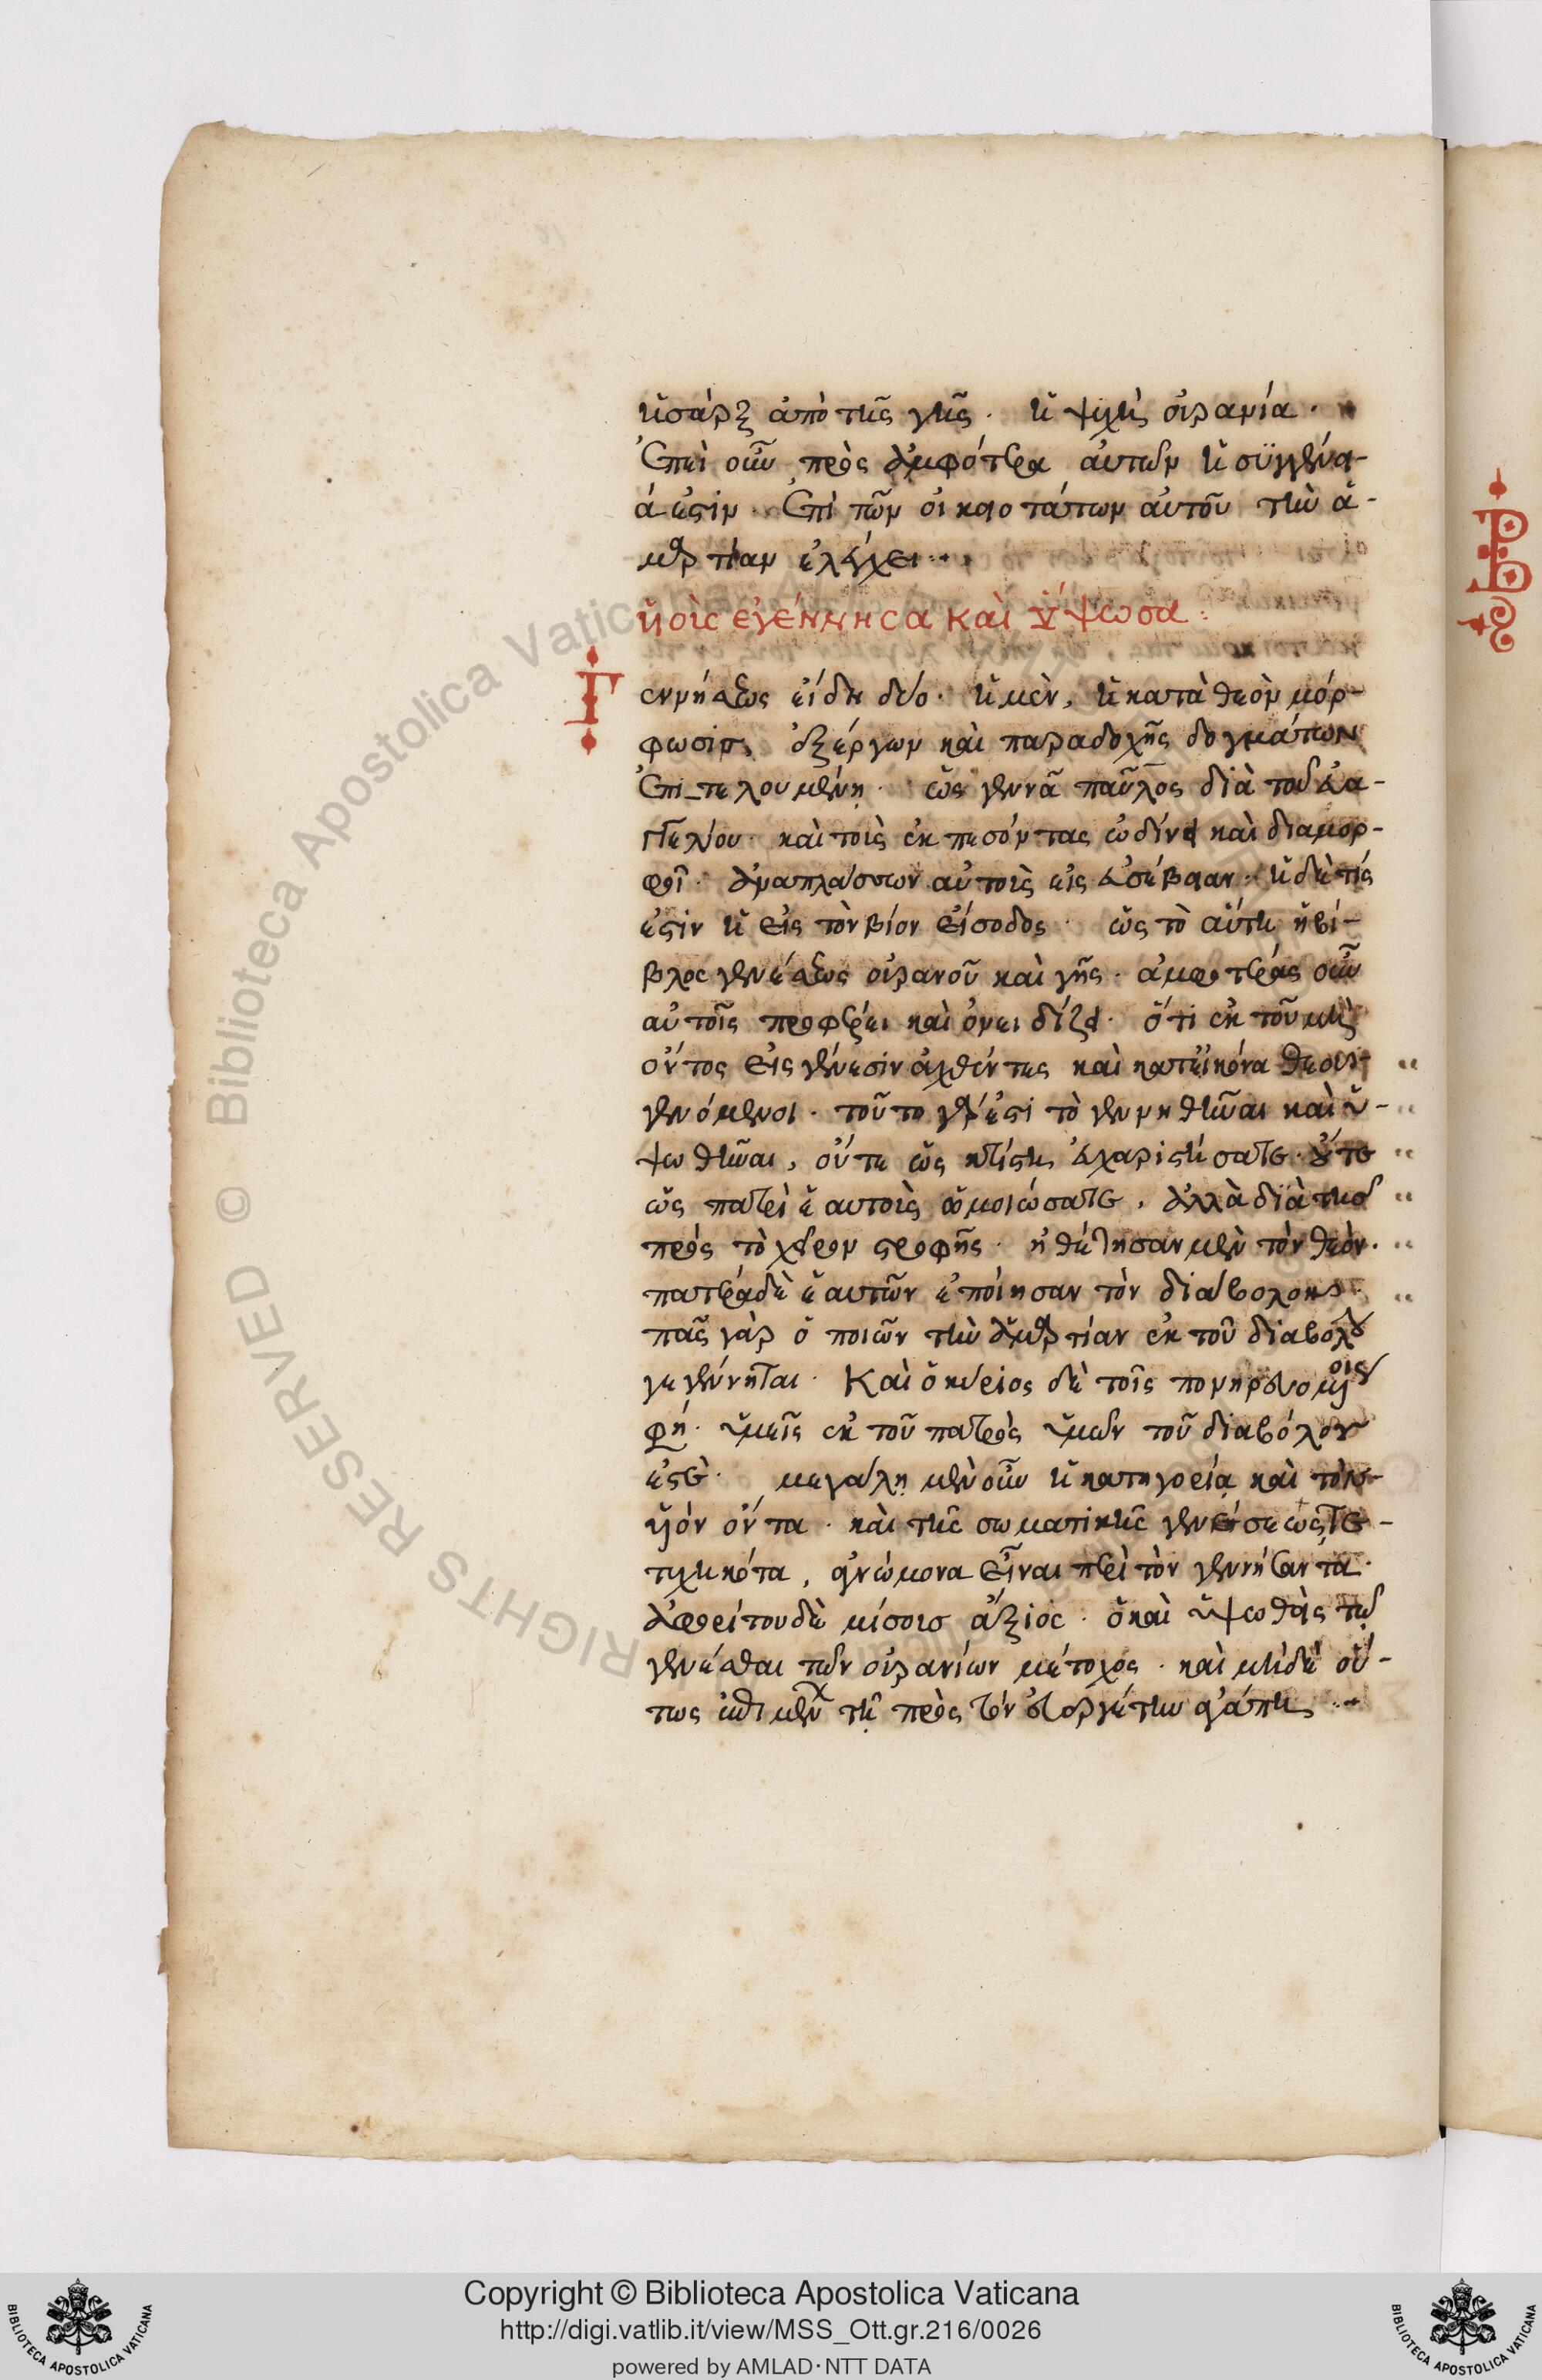 ἡ σὰρξ ἀπὸ τῆς γῆς. ἡ ψυχὴ οὐρανία.
Ἐπεὶ οὖν πρὸς ἀμφότερα αὐτῶν ἡ συγγένει-
ά ἐστιν. Ἐπὶ τῶν οἰκειοτάτων αὐτοῦ τὴν ἁ-
μαρτίαν ἐλέγχει
υἱοὺς ἐγέννησα καὶ ὕψωσα:
Γεννήσεως εἴδη δύο. ἡ μὲν, ἡ κατὰ θεὸν μόρ-
φωσις, ἐξ ἔργων καὶ παραδοχῆς δογμάτων
Ἐπιτελουμένη. ὡς γεννᾶ παῦλος διὰ τοῦ εὐα-
γγελίου. καὶ τοὺς ἐκπεσόντας ὠδίνει καὶ διαμορ-
φοῖ. ἀναπλάσσων αὐτοὺς εἰς εὐσέβειαν. ἡ δὲ τίς
ἐστιν ἡ εἰς τὸν βίον εἴσοδος. ὡς τὸ αὕτη ἡ βί-
βλος γενέσεως οὐρανοῦ καὶ γῆς. ἀμφοτέρας οὖν
αὐτοῖς προφέρει καὶ ὀνειδίζει. ὅτι ἐκ τοῦ μὴ
ὄντος εἰς γένεσιν ἀχθέντες καὶ κατ' εἰκόνα θεοῦ
γενόμενοι. τοῦτο γάρ ἐστι τὸ γεννηθῆναι καὶ ὑ-
ψωθῆναι, οὔτε ὡς κτίστῃ εὐχαριστήσατε. οὔτε
ὡς πατρὶ ἑαυτοὺς ὁμοιώσατε, ἀλλὰ διὰ τῆς
πρὸς τὸ χεῖρον στροφῆς. ἠθέτησαν μὲν τὸν θεόν.
πατέρα δὲ ἑαυτῶν ἐποίησαν τὸν διάβολον.
πᾶς γὰρ ὁ ποιῶν τὴν ἁμαρτίαν ἐκ τοῦ διαβόλου
γεγέννηται. Καὶ ὁ κύριος δὲ τοῖς πονηρευομένοις
φη. ὑμεῖς ἐκ τοῦ πατρὸς ὑμῶν τοῦ διαβόλου
ἐστέ. μεγάλη μὲν οὖν ἡ κατηγορία καὶ τὸν
υἱὸν ὄντα. καὶ τῆς σωματικῆς γενέσεως τε-
τυχηκότα, ἀγνώμονα εἶναι περὶ τὸν γεννήσαντα.
ἀφορήτου δὲ μίσους ἄξιος. ὁ καὶ ὑψωθεὶς τῷ
γενέσθαι τῶν οὐρανίων μέτοχος. καὶ μηδὲ οὕ-
τως τῇ πρὸς τὸν εὐεργέτην ἀγάπῃ
Copyright © Biblioteca Apostolica Vaticana
http://digi.vatlib.it/view/MSS_Ott.gr.216/0026
powered by AMLAD·NTT DATA